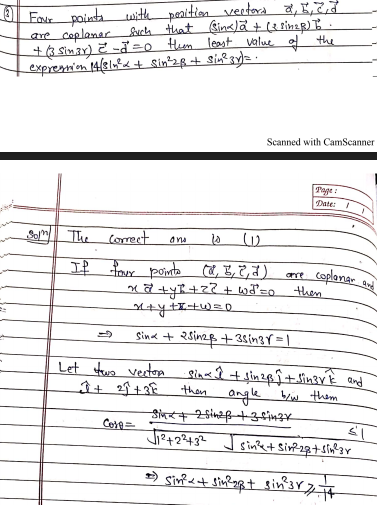 ② Four points with position vectors a⃗, b⃗, c⃗, d⃗
are coplanar such that (sinα)a⃗ + (2 sin2β)b⃗
+ (3 sin3γ) c⃗ - d⃗ = 0 then least value of the
expression 14(sin²α + sin²2β + sin²3γ) = .
Scanned with CamScanner
Page :
Date: / /
Solⁿ The correct ans is (1)
If four points (a⃗, b⃗, c⃗, d⃗) are coplanar and
x a⃗ + y b⃗ + z c⃗ + w d⃗ = 0 then
x + y + z + w = 0
⇒ sinα + 2sin2β + 3sin3γ = 1
Let two vectors sinα î + sin2β ĵ + sin3γ k̂ and
î + 2ĵ + 3k̂ then angle b/w them
Cosθ = (sinα + 2sin2β + 3 sin3γ) / (√(1²+2²+3²) √(sin²α + sin²2β + sin²3γ)) ≤ 1
⇒ sin²α + sin²2β + sin²3γ ≥ 1/14